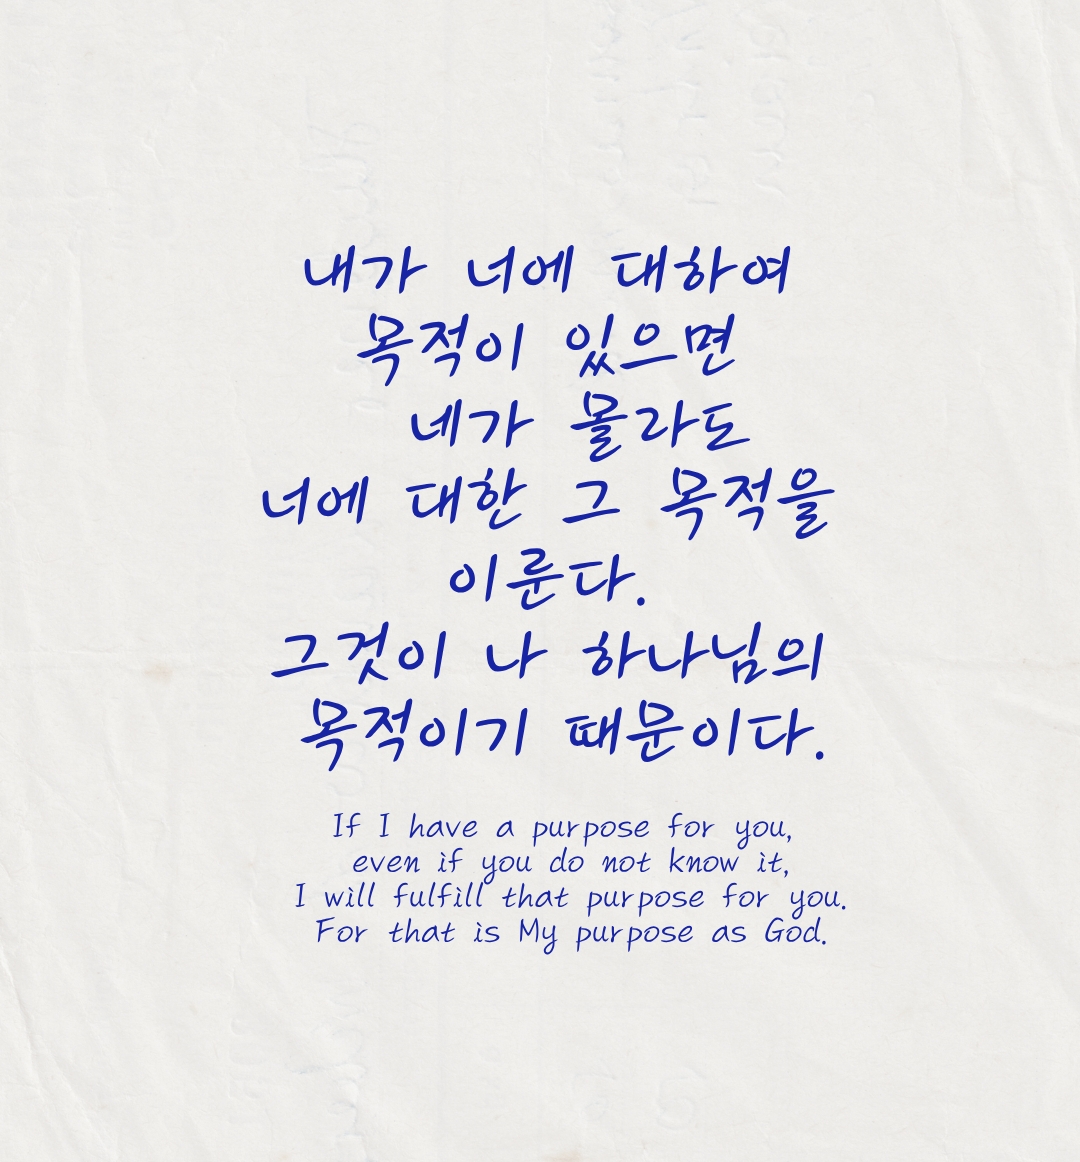 내가 너에 대하여
목적이 있으면
네가 몰라도
너에 대한 그 목적을
이룬다.
그것이 나 하나님의
목적이기 때문이다.
If I have a purpose for you,
even if you do not know it,
I will fulfill that purpose for you.
For that is My purpose as God.